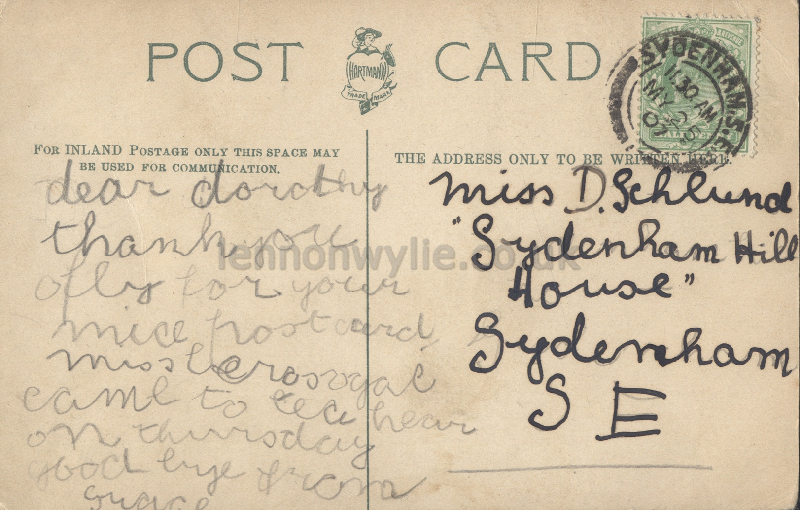 POST CARD
HARTMANN
TRADE MARK
SYDENHAM. S.E.
11.30 AM
MY
07
FOR INLAND POSTAGE ONLY THIS SPACE MAY
BE USED FOR COMMUNICATION.
THE ADDRESS ONLY TO BE WRITTEN HERE.
dear dorothy
thank you
ofly for your
nice postcard
miss
came to tea hear
on thursday
good bye from
grace
Miss D. Schlund
"Sydenham Hill
House"
Sydenham
S E
lennonwylie.co.uk